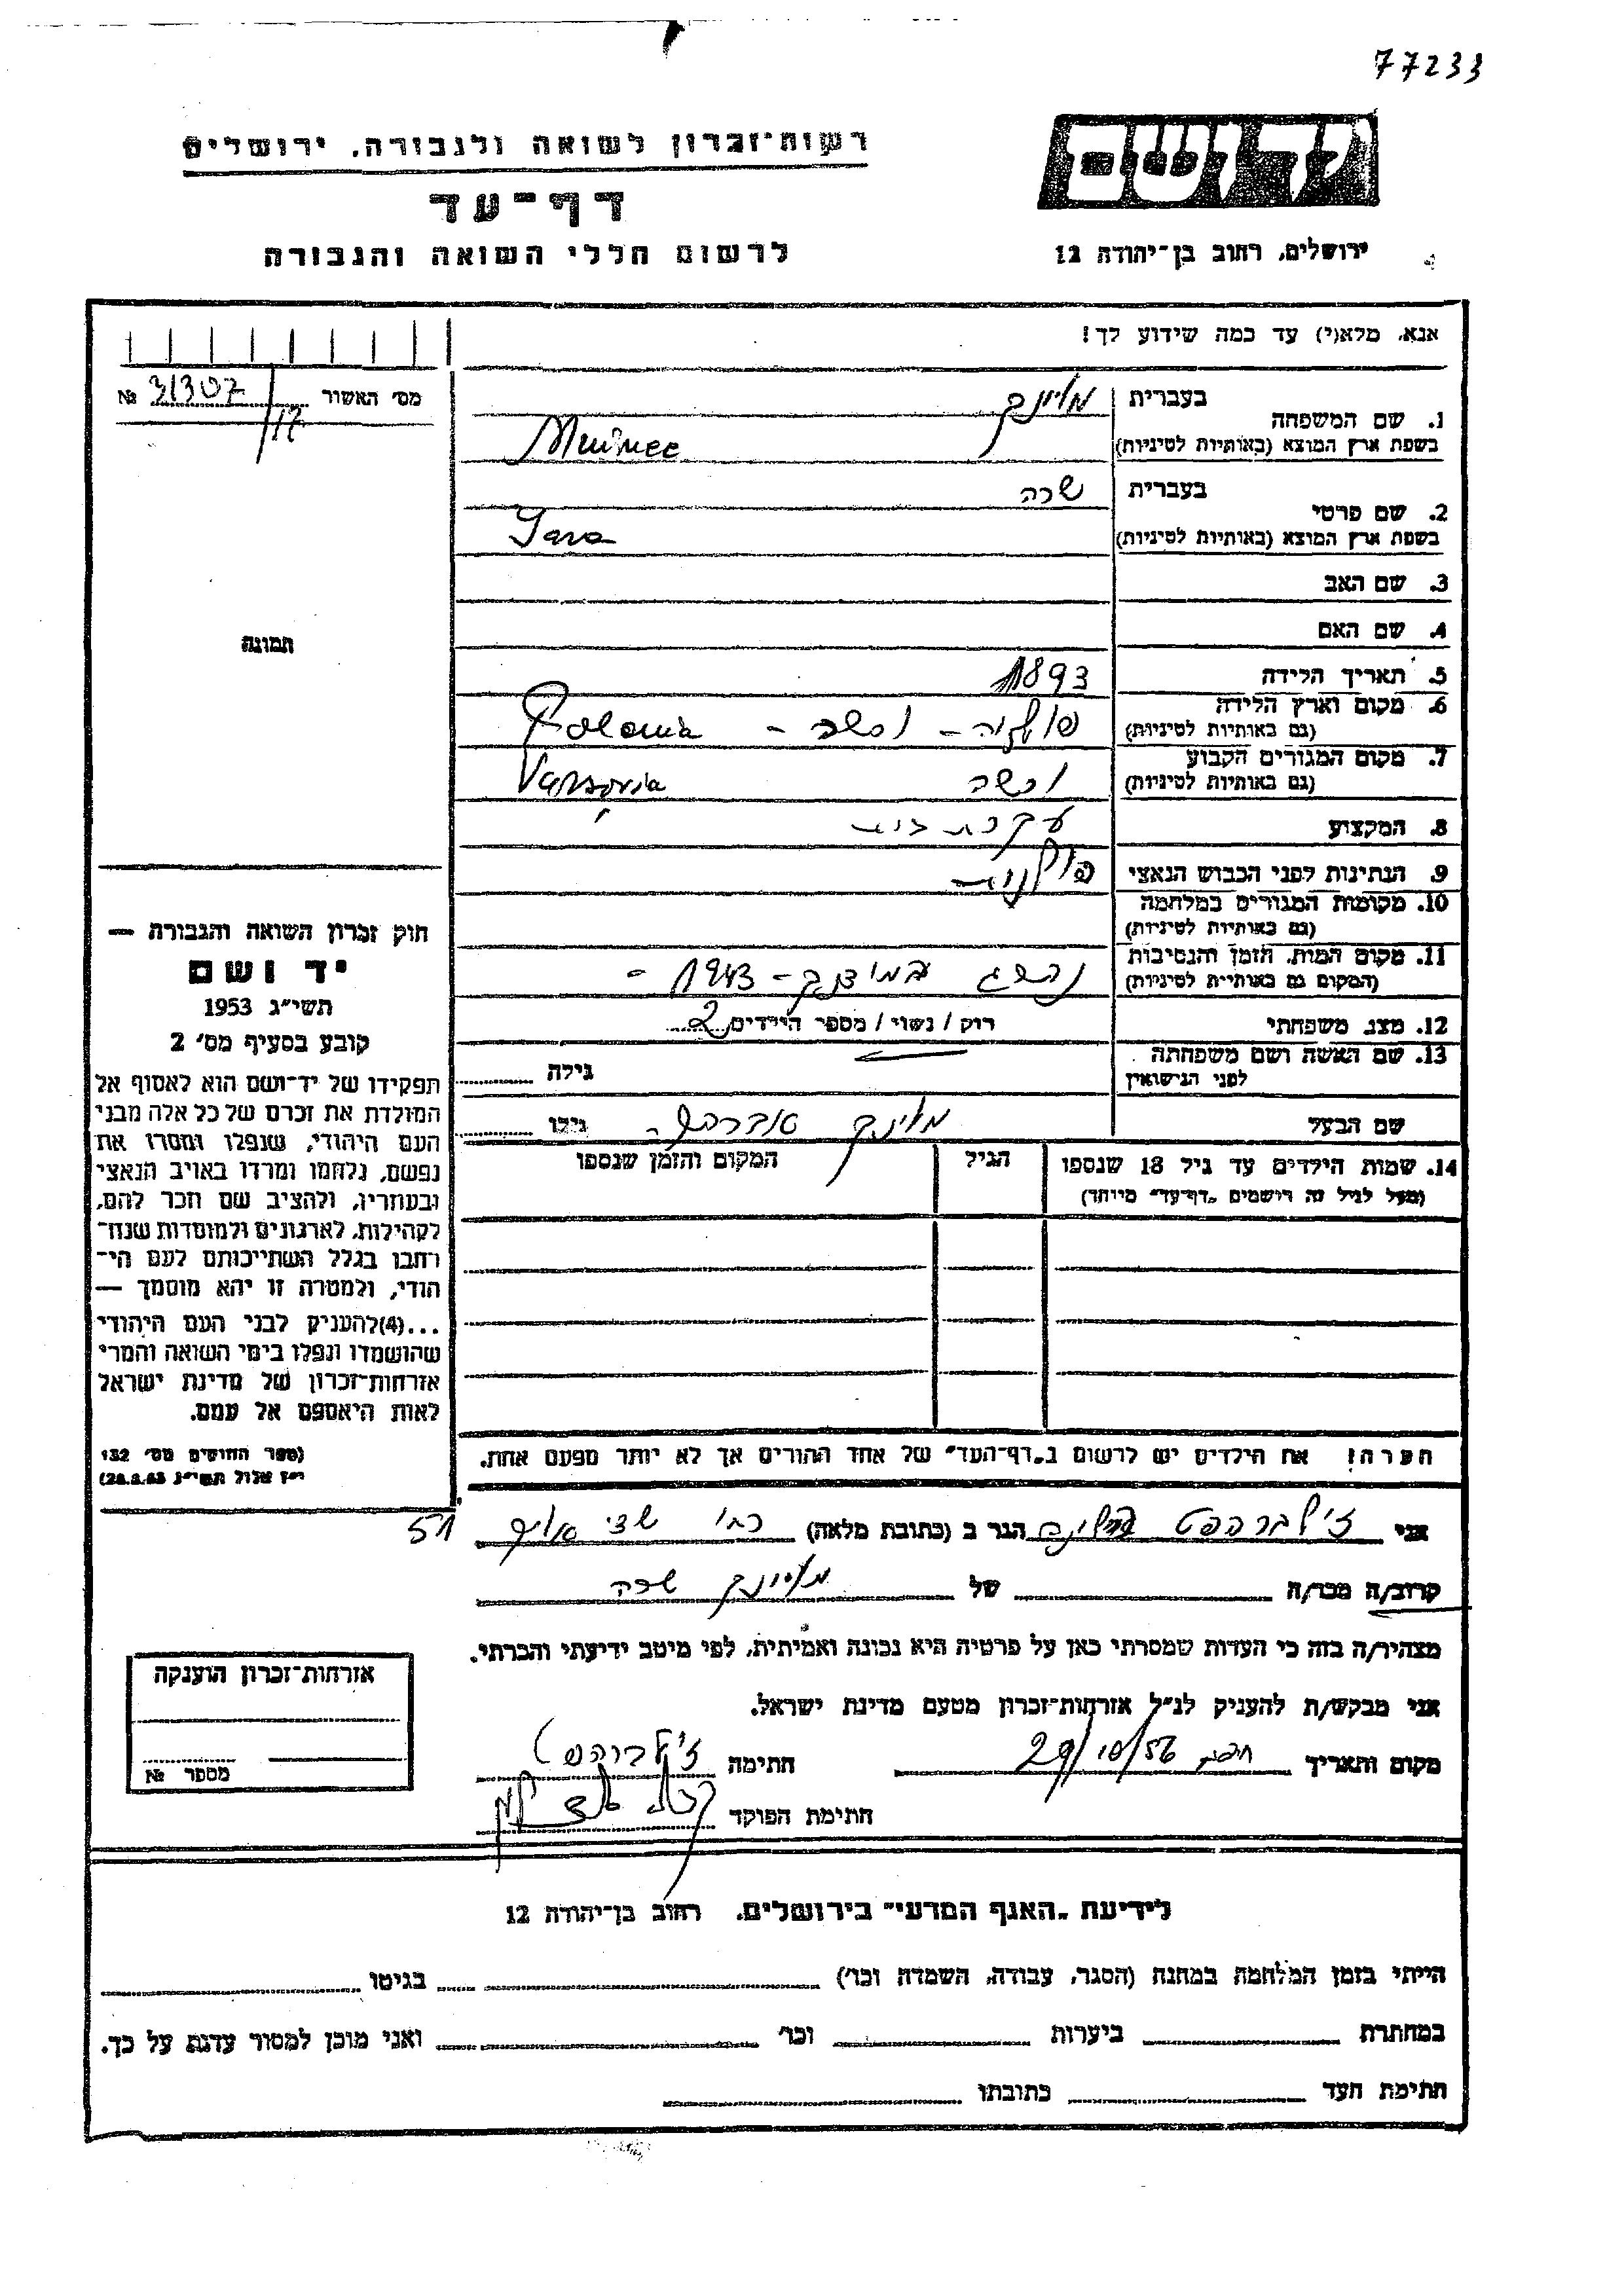 77233
יד ושם
רשות־זכרון לשואה ולגבורה, ירושלים
דף־עד
לרשום חללי השואה והגבורה
ירושלים, רחוב בן־יהודה 12
אנא, מלא(י) עד כמה שידוע לך!
מס׳ האשור 31307 №
/17
1. שם המשפחה
בעברית
בשפת ארץ המוצא (באותיות לטיניות)
2. שם פרטי
בעברית שרה
בשפת ארץ המוצא (באותיות לטיניות) Sara
3. שם האב
4. שם האם
5. תאריך הלידה 1893
6. מקום וארץ הלידה
(גם באותיות לטיניות) פולניה - ורשה - Polonia
7. מקום המגורים הקבוע
(גם באותיות לטיניות) ורשה Varsovia
8. המקצוע עקרת בית
9. הנתינות לפני הכבוש הנאצי פולנית
10. מקומות המגורים במלחמה
(גם באותיות לטיניות)
11. מקום המות, הזמן והנסיבות
(המקום גם באותיות לטיניות) 1943 -
12. מצב משפחתי רוק / נשוי / מספר הילדים 2
13. שם האשה ושם משפחתה
לפני הנישואין
גילה
שם הבעל אברהם גילו
14. שמות הילדים עד גיל 18 שנספו
(מעל לגיל זה רושמים „דף־עד״ מיוחד)
הגיל
המקום והזמן שנספו
הערה! את הילדים יש לרשום ב„דף־העד״ של אחד ההורים אך לא יותר מפעם אחת.
תמונה
חוק זכרון השואה והגבורה —
יד ושם
תשי״ג 1953
קובע בסעיף מס׳ 2
תפקידו של יד־ושם הוא לאסוף אל
המולדת את זכרם של כל אלה מבני
העם היהודי, שנפלו ומסרו את
נפשם, נלחמו ומרדו באויב הנאצי
ובעוזריו, ולהציב שם וזכר להם,
לקהילות, לארגונים ולמוסדות שנח־
רחבו בגלל השתייכותם לעם הי־
הודי, ולמטרה זו יהא מוסמך —
...(4)להעניק לבני העם היהודי
שהושמדו ונפלו בימי השואה והמרי
אזרחות־זכרון של מדינת ישראל
לאות היאספם אל עמם.
(ספר החוקים מס׳ 132
י״ז אלול תשי״ג 28.8.53)
אני זילברהפט הגר ב (כתובת מלאה) 51
קרוב/ה מכר/ה של שרה
מצהיר/ה בזה כי העדות שמסרתי כאן על פרטיה היא נכונה ואמיתית, לפי מיטב ידיעתי והכרתי.
אני מבקש/ת להעניק לנ״ל אזרחות־זכרון מטעם מדינת ישראל.
מקום ותאריך חיפה 29/10/56 חתימה
חתימת הפוקד
אזרחות־זכרון הוענקה
מספר №
לידיעת „האגף המדעי״ בירושלים, רחוב בן־יהודה 12
הייתי בזמן המלחמה במחנה (הסגר, עבודה, השמדה וכו׳) בגיטו
במחתרת ביערות וכו׳ ואני מוכן למסור עדות על כך.
חתימת העד כתובתו